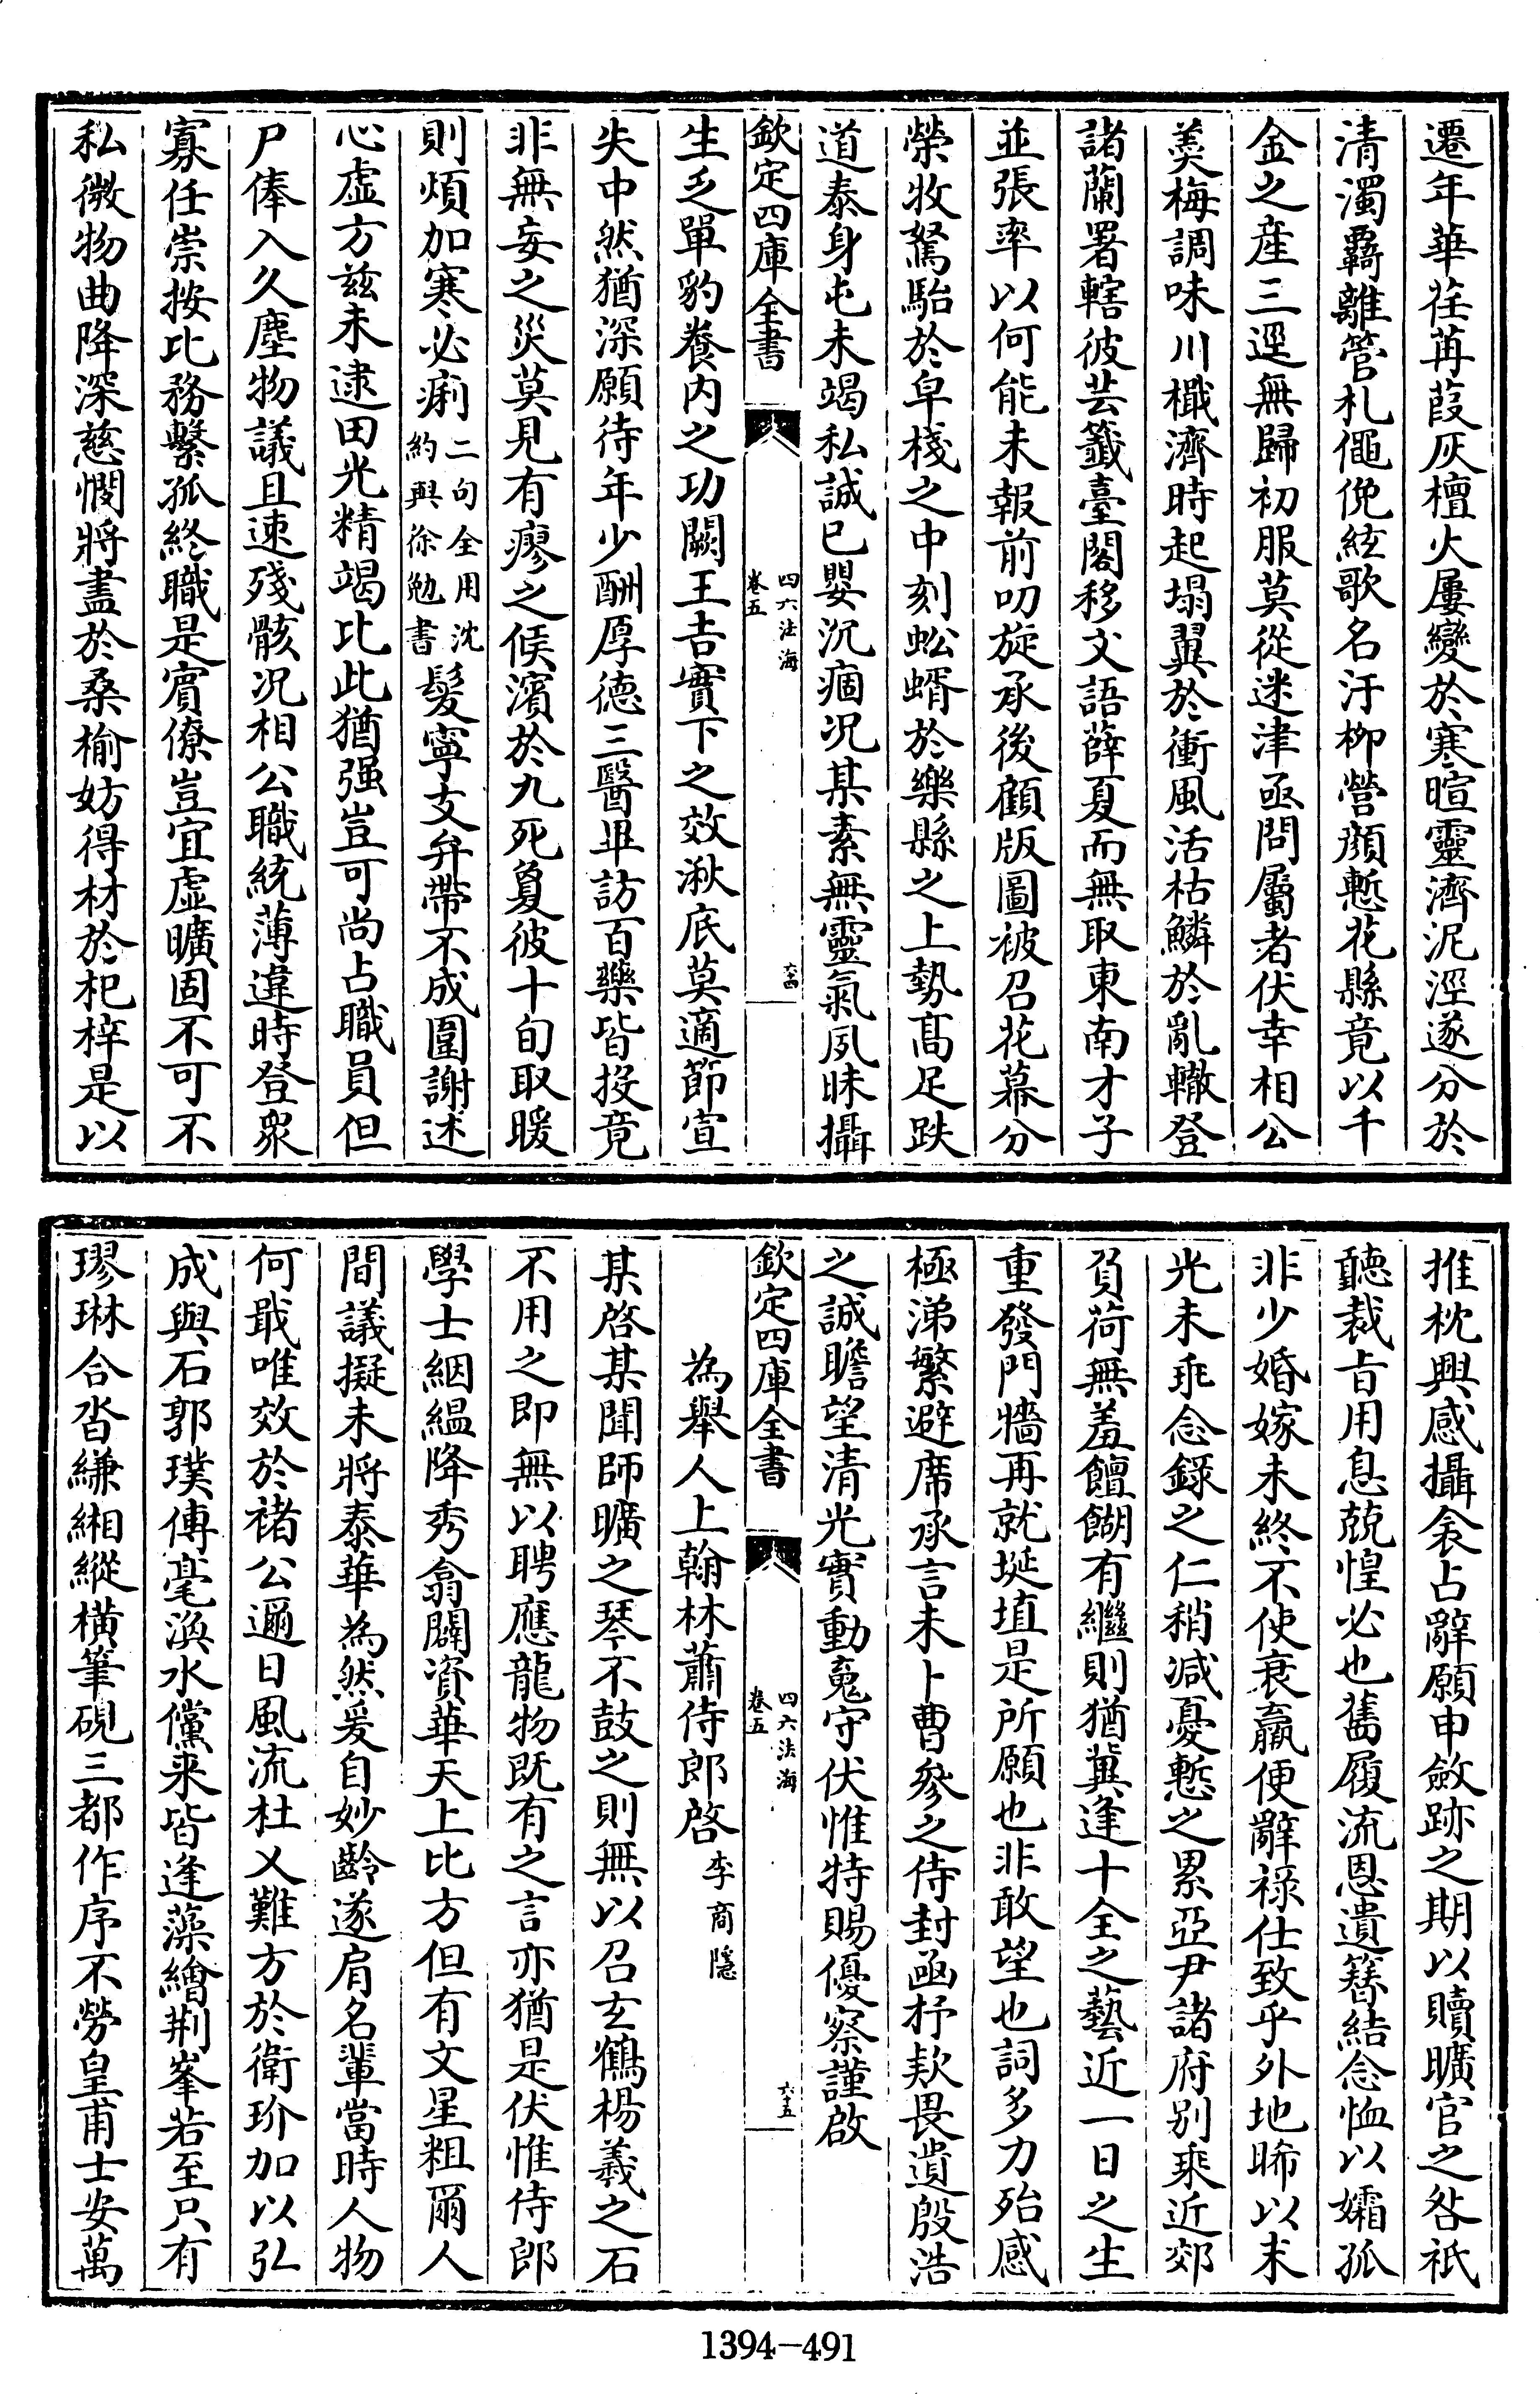 遷年華荏苒葭灰檀火屢變於寒暄靈濟泥涇遂分於
清濁覊離管札僶俛絃歌名汙柳營顔慙花縣竟以千
金之産三逕無歸初服莫從迷津亟問屬者伏幸相公
羮梅調味川檝濟時起塌翼於衝風活枯鱗於亂轍登
諸蘭署轄彼芸籤臺閣移文語薛夏而無取東南才子
並張率以何能未報前叨旋承後顧版圖被召花幕分
榮牧駑駘於皁棧之中刻蚣蝑於樂縣之上勢髙足跌
道泰身屯未竭私誠已嬰沉痼况某素無靈氣夙昧攝
欽定四庫全書
四六法海
卷五
六十四
生乏單豹養内之功闕王吉實下之效湫底莫適節宣
失中然猶深願待年少酬厚德三醫畢訪百藥皆投竟
非無妄之災莫見有瘳之候濱於九死敻彼十旬取暖
則煩加寒必痢二句全用沈約與徐勉書髮寧支弁帶不成圍謝述
心虚方兹未逮田光精竭比此猶强豈可尚占職員但
尸俸入久塵物議且速殘骸况相公職統薄違時登衆
寡任崇按比務繫孤終職是賓僚豈宜虚曠固不可不
私微物曲降深慈憫將盡於桑榆妨得材於杞梓是以
推枕興感攝衾占辭願申斂跡之期以贖曠官之咎祇
聽裁旨用息兢惶必也舊履流恩遺簪結念恤以孀孤
非少婚嫁未終不使衰羸便辭禄仕致乎外地晞以末
光未乖念録之仁稍減憂慙之累亞尹諸府别乘近郊
負荷無羞饘餬有繼則猶冀逢十全之藝近一日之生
重發門牆再就埏埴是所願也非敢望也詞多力殆感
極涕繁避席承言未卜曹參之侍封函抒欵畏遺殷浩
之誠瞻望清光實動䰟守伏惟特賜優察謹啟
欽定四庫全書
四六法海
卷五
六十五
為舉人上翰林蕭侍郎啓李商隱
某啓某聞師曠之琴不鼓之則無以召玄鶴楊羲之石
不用之即無以聘應龍物既有之言亦猶是伏惟侍郎
學士絪緼降秀翕闢資華天上比方但有文星粗爾人
間議擬未將泰華為然爰自妙齡遂肩名輩當時人物
何戢唯效於褚公邇日風流杜乂難方於衛玠加以弘
成與石郭璞傳毫渙水儻来皆逢藻繪荆峯若至只有
璆琳合沓縑緗縱橫筆硯三都作序不勞皇甫士安萬
1394-491